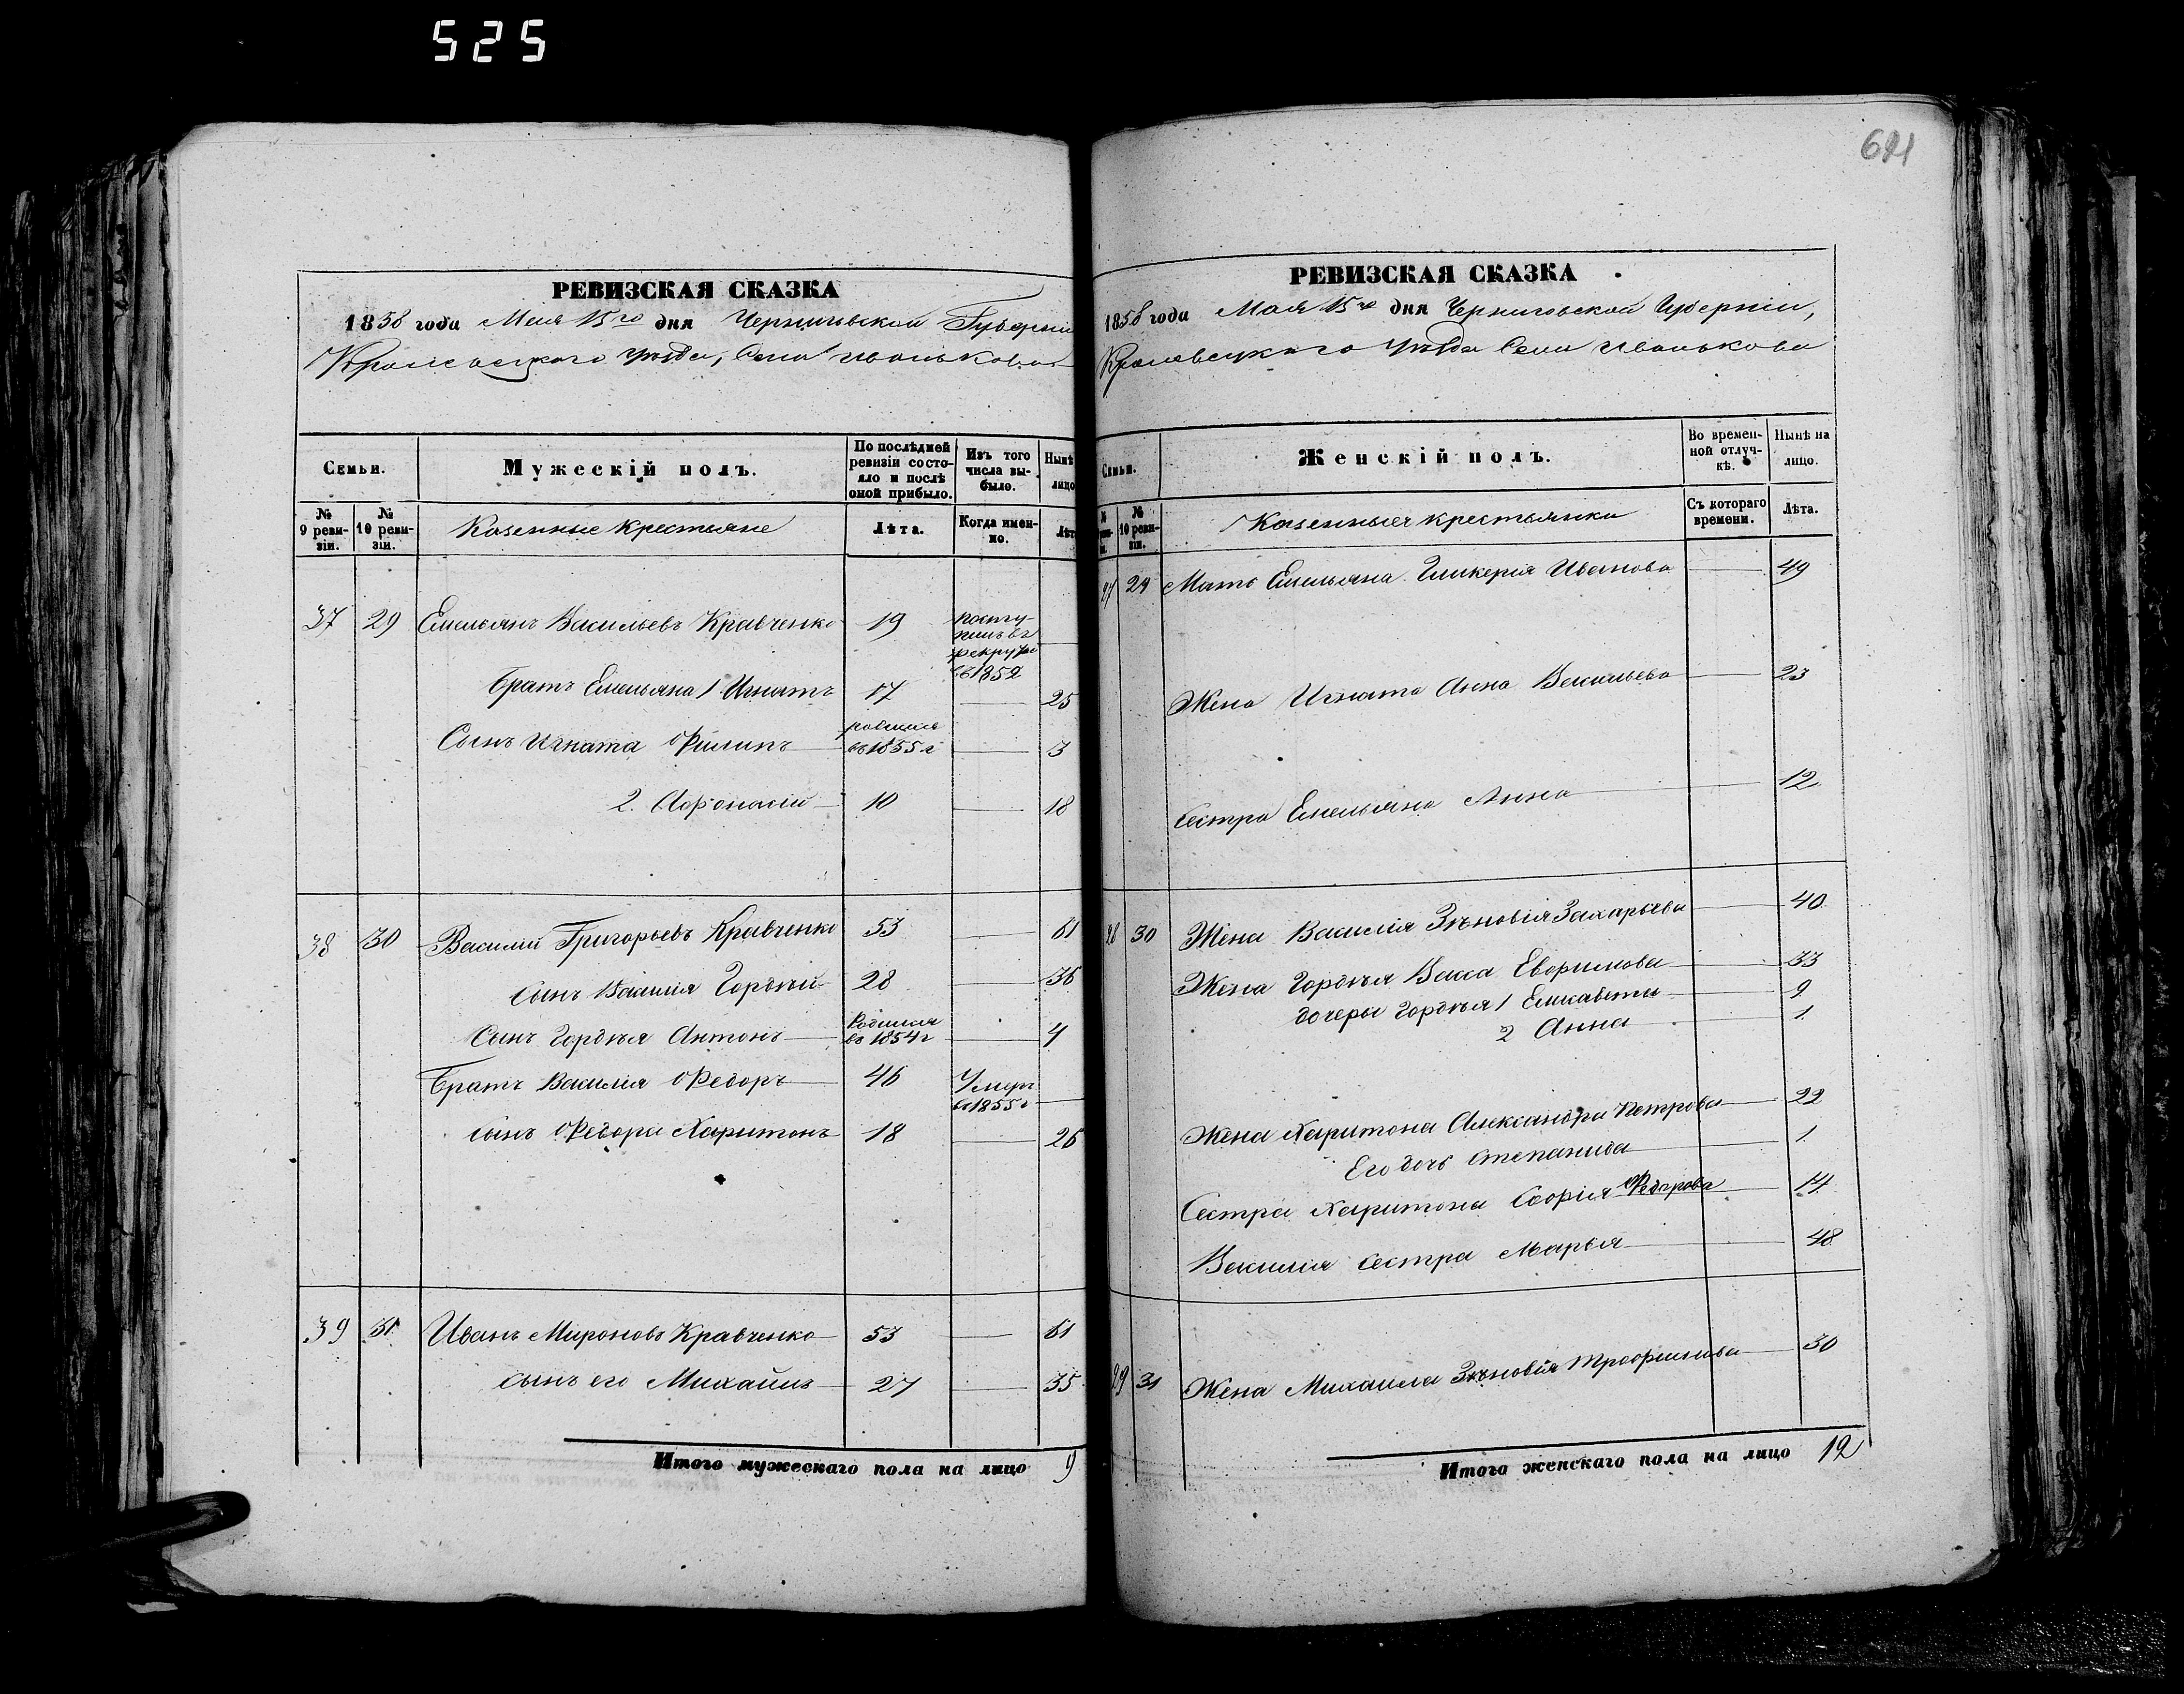 525
621
РЕВИЗСКАЯ СКАЗКА
1858 года Мая 15го дня Черниговской Губерніи
Кролевецкаго уѣзда, Села Иванькова
Семьи.
Мужескій полъ.
По послѣдней ревизіи состояло и послѣ оной прибыло.
Изъ того числа выбыло.
Нынѣ лицо
№ 9 ревизіи.
№ 10 ревизіи.
Казенные крестьяне
Лѣта.
Когда именно.
Лѣт
37 29 Емельянъ Васильевъ Кравченко 19 поступилъ въ рекруты въ 1852
Братъ Емельяна 1 Игнатъ 17 25
Сынъ Игната Филипъ родился въ 1855 г 3
2. Афонасій 10 18
38 30 Василий Григорьевъ Кравченко 53 61
Сынъ Василія Гордѣй 28 36
Сынъ Гордѣя Антонъ Родился въ 1854 г 4
Братъ Василія Федоръ 46 Умеръ въ 1855 г
сынъ Федора Харитонъ 18 26
39 31 Иванъ Мироновъ Кравченко 53 61
сынъ его Михаилъ 27 35
Итого мужескаго пола на лицо 9
РЕВИЗСКАЯ СКАЗКА
1858 года Мая 15го дня Черниговской Губерніи,
Кролевецкаго уѣзда Села Иванькова
Семьи.
Женскій полъ.
Во временной отлучкѣ.
Нынѣ на лицо.
№ 10 ревизіи.
Казенныя крестьянки
Съ котораго времени.
Лѣта.
29 Мать Емельяна Гликерія Иванова 49
Жена Игната Анна Васильева 23
Сестра Емельяна Анна 12
30 Жена Василія Зѣновія Захарьева 40
Жена Гордѣя Васса Евфимова 33
дочеры Гордѣя 1 Елисавета 9
2 Анна 1
Жена Харитона Александра Петрова 22
Его дочь Степанида 1
Сестра Харитона Софія Федорова 14
Василія сестра Марья 48
31 Жена Михаила Зѣновія Трофимова 30
Итого женскаго пола на лицо 12